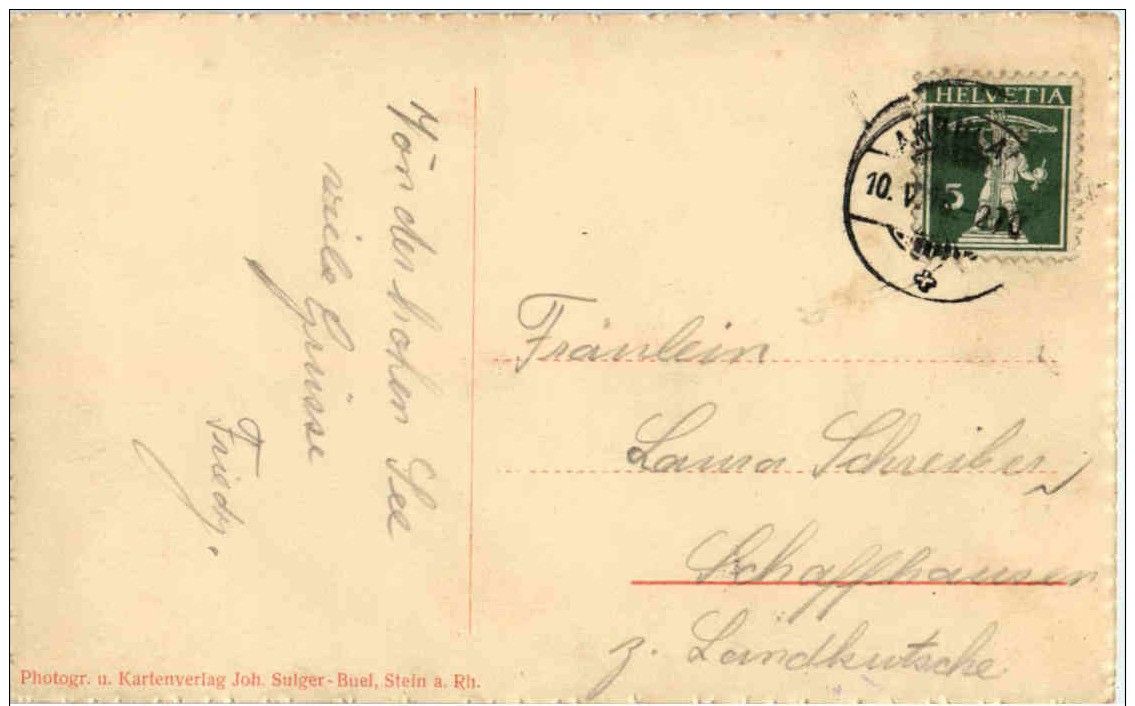 Von der hohen See
viele Grüsse
Friedy.
HELVETIA
5
10. V.
Fräulein
Laura Schreiber
Schaffhausen
z. Landkutsche
Photogr. u. Kartenverlag Joh. Sulger-Buel, Stein a. Rh.